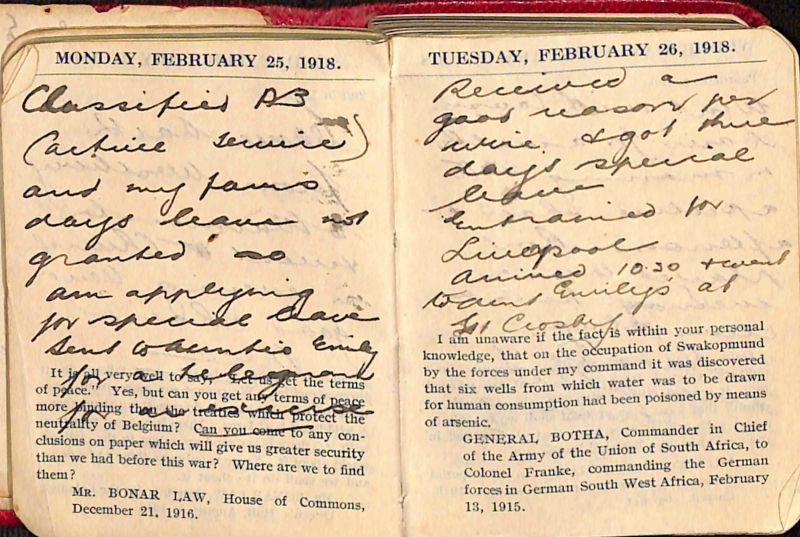 MONDAY, FEBRUARY 25, 1918.
Classified A3
(active service)
and my
days leave not
granted so
am applying
for special leave
sent to Auntie Emily
for a telegram
for an excuse
It is all very well to say, Let us get the terms
of peace. Yes, but can you get any terms of peace
more binding than the treaties which protect the
neutrality of Belgium? Can you come to any con-
clusions on paper which will give us greater security
than we had before this war? Where are we to find
them?
MR. BONAR LAW, House of Commons,
December 21, 1916.
TUESDAY, FEBRUARY 26, 1918.
Received a
good reason per
wire. & got three
days special
leave
Entrained for
Liverpool
arrived 10.30 & went
to aunt Emily's at
Crosby
I am unaware if the fact is within your personal
knowledge, that on the occupation of Swakopmund
by the forces under my command it was discovered
that six wells from which water was to be drawn
for human consumption had been poisoned by means
of arsenic.
GENERAL BOTHA, Commander in Chief
of the Army of the Union of South Africa, to
Colonel Franke, commanding the German
forces in German South West Africa, February
13, 1915.